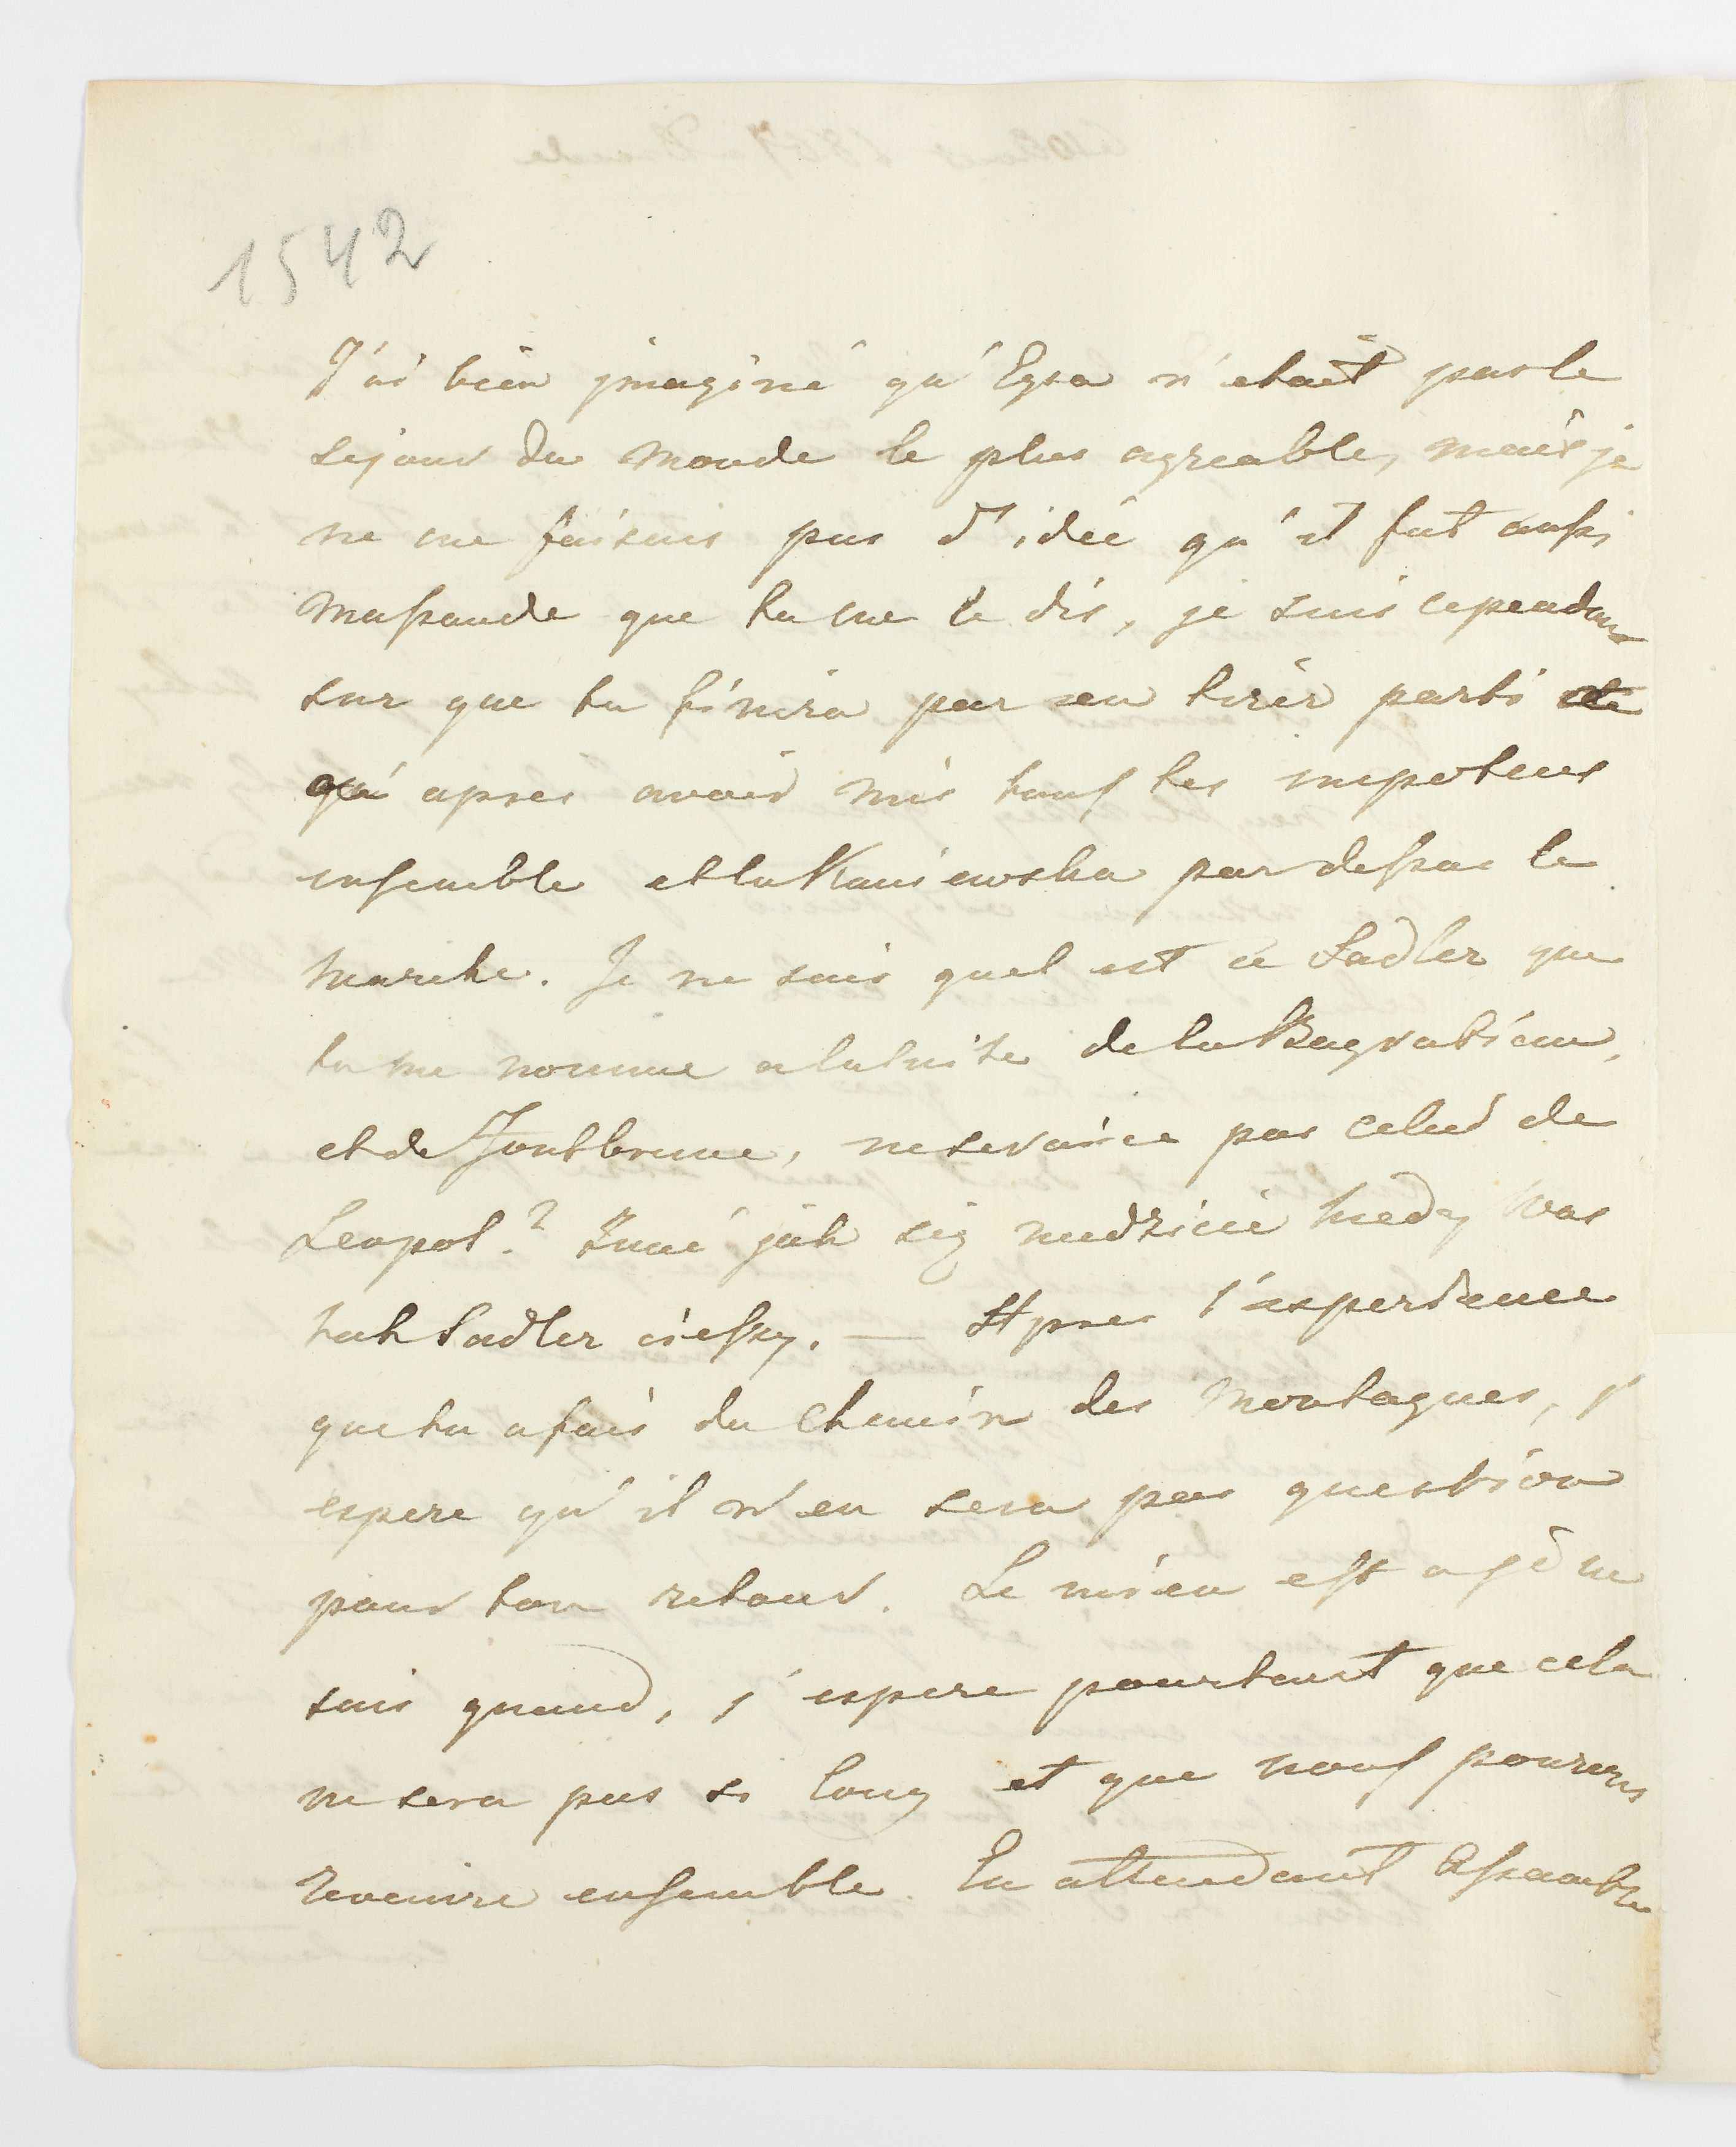 1542
J'ai bien jmaginé qu'Egra n'etait pas le
sejour du monde le plus agreable, mais je
ne me faisais pas d'idée qu'il fut aussi
maussaude que tu me le dis, je suis cependans
sur que tu finira par en tirer parti et
qu'apres avoir mis tous les impotens
ensemble et la Kaniewska par dessus le
marche. Je ne sais quel est ce Sadler que
tu me nomme a la suite de la Bagration,
et de Fontbrune, ne serai ce pas celui de
Leopol? jak się nudzicie kiedy was
tak Sadler cieszy. — Apres l'experience
que tu a fais du chemin des montagnes, j'
espere qu'il n'en sera pas question
pour ton retour. Le mien est a je ne
sais quand, j'espere pourtant que cela
ne sera pas si long et que nous pourrons
revenire ensemble. En attendant